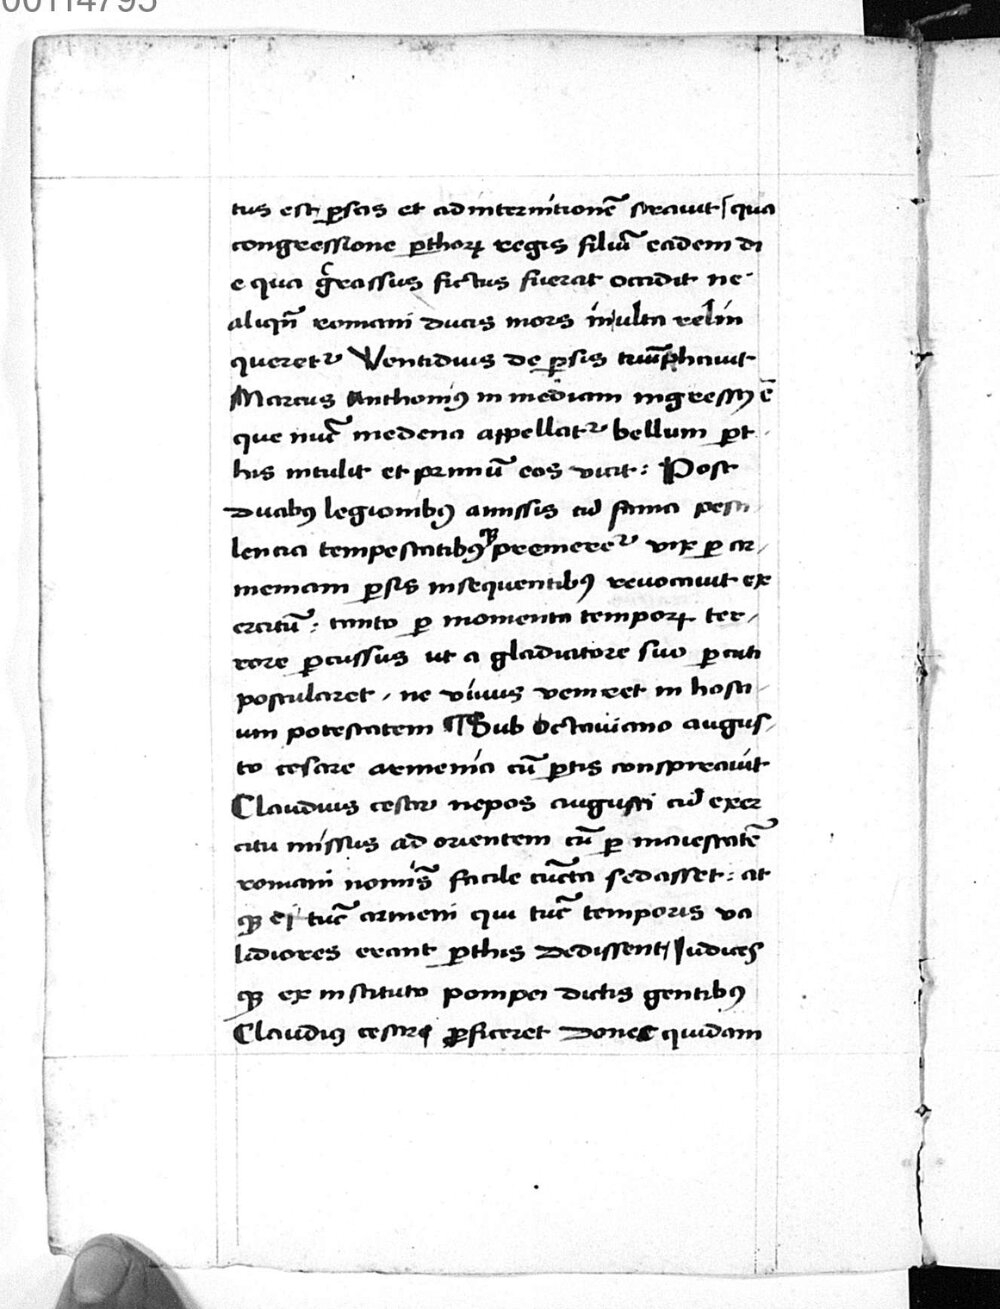 00114795
tus est ꝑsas et ad internitionē strauit / qua
congressione ꝑthoꝝ regis filiū eadem di
e qua grassus fictus fuerat occidit ne
aliqn̄ romani ducis mors inulta relin
queretᷣ Ventidius de ꝑsis triūphauit
Marcus Anthoniꝰ in mediam ingressꝰ ē
que nūc medena appellatᷣ bellum ꝑt
his intulit et primū eos vicit : Post
duabꝰ legionibꝰ amissis cū fama pesti
lencia tempestatibꝰqꝫ premeretᷣ vix ꝑ ar
meniam ꝑsis insequentibꝰ reuocauit ex
ercitū : tanto ꝑ momenta tempoꝝ ter
rore ꝑcussus ut a gladiatore suo ꝑcuti
postularet / ne viuus veniret in hosti
um potestatem ¶ Sub Octauiano augus
to cesare armenia cū ꝑtis conspirauit
Claudius cesar nepos augusti cū exer
citu missus ad orientem cū ꝑ maiestatē
romani nomīs facile cūcta sedasset : at
qꝫ ei tūc armeni qui tūc temporis va
lidiores erant ꝑthis dedissent / Iudices
qꝫ ex instituto pompei dictis gentibꝰ
Claudiꝰ cesar ꝓficeret Donec quidam